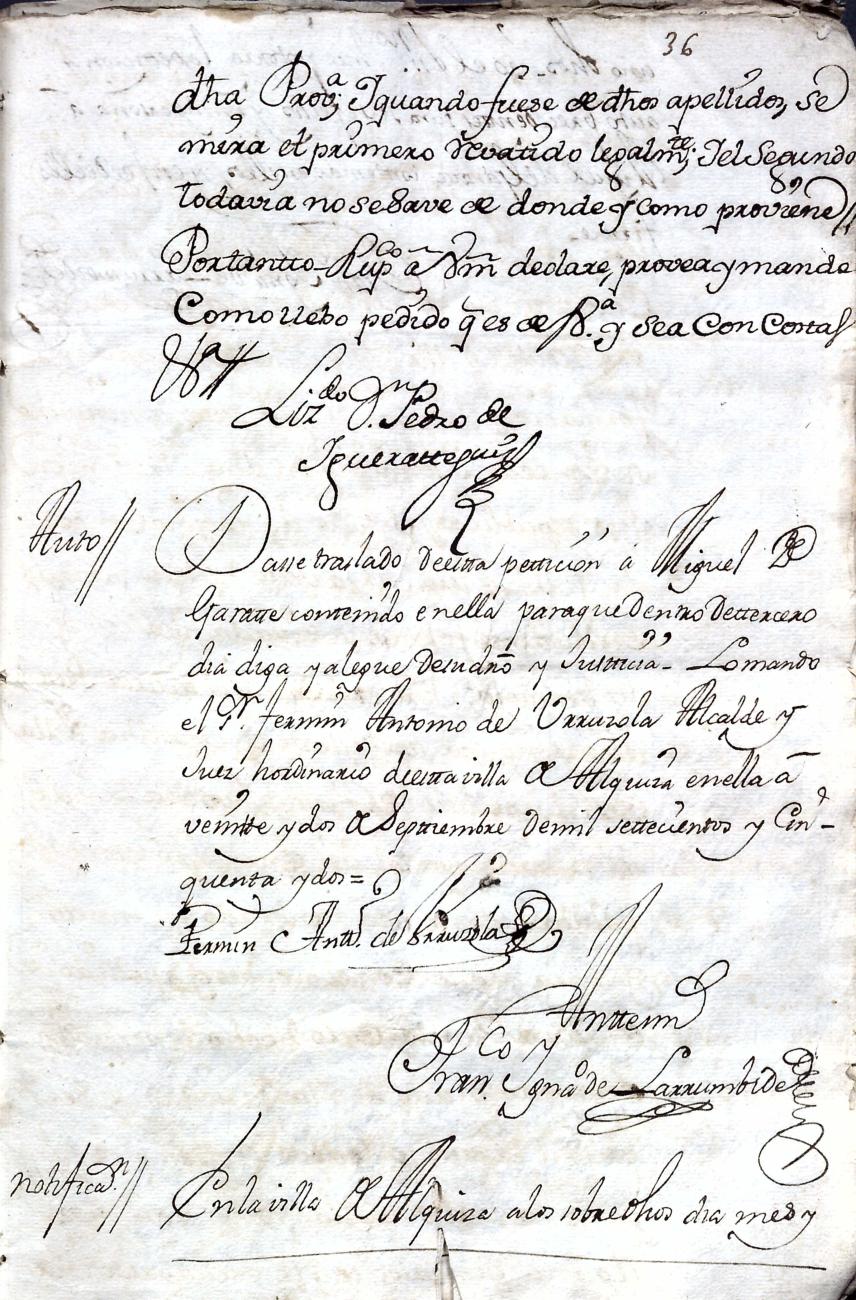 36
dha Prov.ª Y quando fuese de dhos apellidos, se
mira el primero derogatido legalm.te; Y el Segundo
todavia no se save de donde y como proviene //
Portantto Supco a Vm declare, provea y mande
Como llebo pedido q es de J.ª y sea Con Costas
Liz.do D.n Pedro de
Ygueratteguis
Auto //
Dasse traslado de estta petticion a Miguel de
Garatte contenido en ella para que Dentro de ttercero
dia diga y alegue de su dro y Justticia - Lo mando
el S.r fermin Antonio de Urruzola Alcalde y
Juez hordinario de estta villa de Alquiza en ella a
veintte y dos de Septtiembre de mil settecientos y Cin-
quenta y dos =
Fermin Antt.o de Urruzola
Antte mi
Fran.co Ygna.o de Larrumbide
notificaz.n //
En la villa de Alquiza a los sobre dhos dia mes y